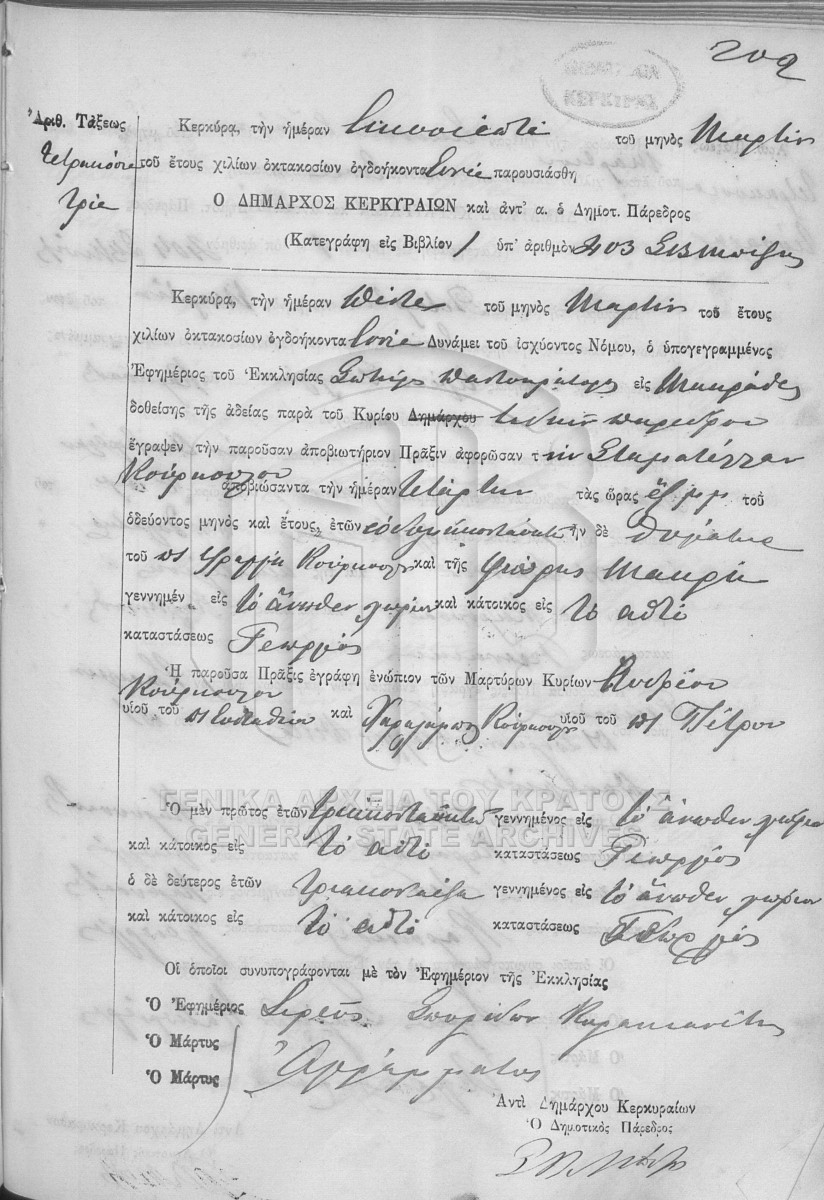 209
Ἀριθ. Τάξεως
Τετρακόσια
τρία
Κερκύρα, τὴν ἡμέραν Εἰκοσιεπτά τοῦ μηνὸς Μαρτίου
τοῦ ἔτους χιλίων ὀκτακοσίων ὀγδοήκοντα Ἐννέα παρουσιάσθη
Ο ΔΗΜΑΡΧΟΣ ΚΕΡΚΥΡΑΙΩΝ καὶ ἀντ' α. ὁ Δημοτ. Πάρεδρος
(Κατεγράφη εἰς Βιβλίον 1 ὑπ' ἀριθμὸν 403
Κερκύρα, τὴν ἡμέραν Πέντε τοῦ μηνὸς Μαρτίου τοῦ ἔτους
χιλίων ὀκτακοσίων ὀγδοήκοντα Ἐννέα Δυνάμει τοῦ ἰσχύοντος Νόμου, ὁ ὑπογεγραμμένος
Ἐφημέριος τοῦ Ἐκκλησίας Σωτῆρος Παντοκράτορος εἰς Μακράδες
δοθείσης τῆς ἀδείας παρὰ τοῦ Κυρίου Δημάρχου εἰδικοῦ παρέδρου
ἔγραψεν τὴν παροῦσαν ἀποβιωτήριον Πρᾶξιν ἀφορῶσαν τ ὴν Σταματέλλαν
Κούρκουλου
ἀποβιώσαντα τὴν ἡμέραν Τετάρτην τὰς ὥρας ἓξ μ μ τοῦ
ὁδεύοντος μηνὸς καὶ ἔτους, ἐτῶν ἑβδομηκονταοκτώ ἦν δὲ θυγάτηρ
τοῦ π Κούρκουλου καὶ τῆς Μακρῆ
γεννημέν εἰς τὸ ἄνωθεν χωρίον καὶ κάτοικος εἰς τὸ αὐτό
καταστάσεως Γεωργός
Ἡ παροῦσα Πρᾶξις ἐγράφη ἐνώπιον τῶν Μαρτύρων Κυρίων Ἀνδρέου
Κούρκουλου
υἱοῦ τοῦ π Εὐσταθίου καὶ Χαραλάμπη Κούρκουλου υἱοῦ τοῦ π Πέτρου
ΓΕΝΙΚΑ ΑΡΧΕΙΑ ΤΟΥ ΚΡΑΤΟΥΣ
GENERAL STATE ARCHIVES
Ὁ μὲν πρῶτος ἐτῶν τριακονταοκτώ γεννημένος εἰς τὸ ἄνωθεν χωρίον
καὶ κάτοικος εἰς τὸ αὐτό καταστάσεως Γεωργός
ὁ δὲ δεύτερος ἐτῶν τριακονταέξ γεννημένος εἰς τὸ ἄνωθεν χωρίον
καὶ κάτοικος εἰς τὸ αὐτό καταστάσεως Γεωργός
Οἱ ὁποῖοι συνυπογράφονται μὲ τὸν Ἐφημέριον τῆς Ἐκκλησίας
Ὁ Ἐφημέριος Ἱερεὺς Σπυρίδων
Ὁ Μάρτυς
Ὁ Μάρτυς Ἀγράμματος
Ἀντὶ Δημάρχου Κερκυραίων
Ὁ Δημοτικὸς Πάρεδρος